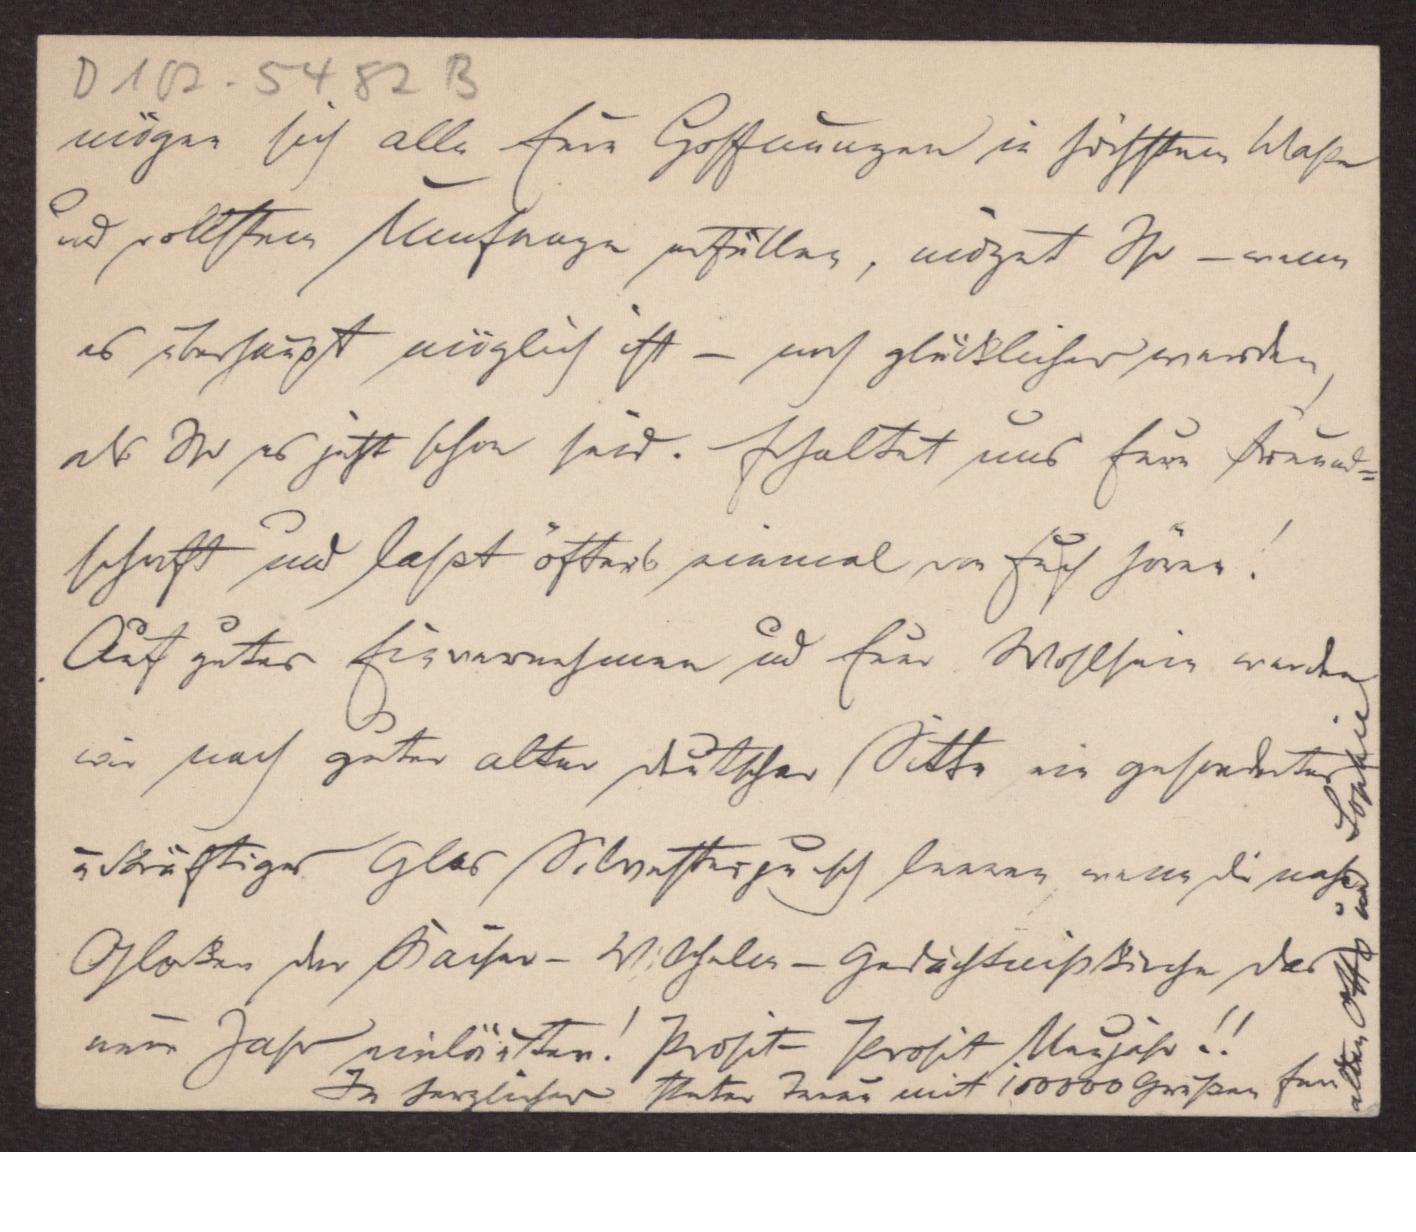 D 102-5482 B
mögen sich alle Eure Hoffnungen in höchstem Maße
und vollstem Umfange erfüllen, möget Ihr – wenn
es überhaupt möglich ist – noch glücklicher werden,
als Ihr es jetzt schon seid. Erhaltet uns Eure Freund=
schaft und laßt öfters einmal von Euch hören!
Auf gutes Einvernehmen und Euer Wohlsein werden
wir nach guter alter deutscher Sitte ein gesondertes
u kräftiges Glas Silvesterpunsch leeren wenn die nahen
Glocken der Kaiser-Wilhelm-Gedächtnißkirche das
neue Jahr einläuten! Prosit Prosit Neujahr!!
In herzlicher steter Treue mit 100000 Grüßen Eure
alten Otto und Sophie